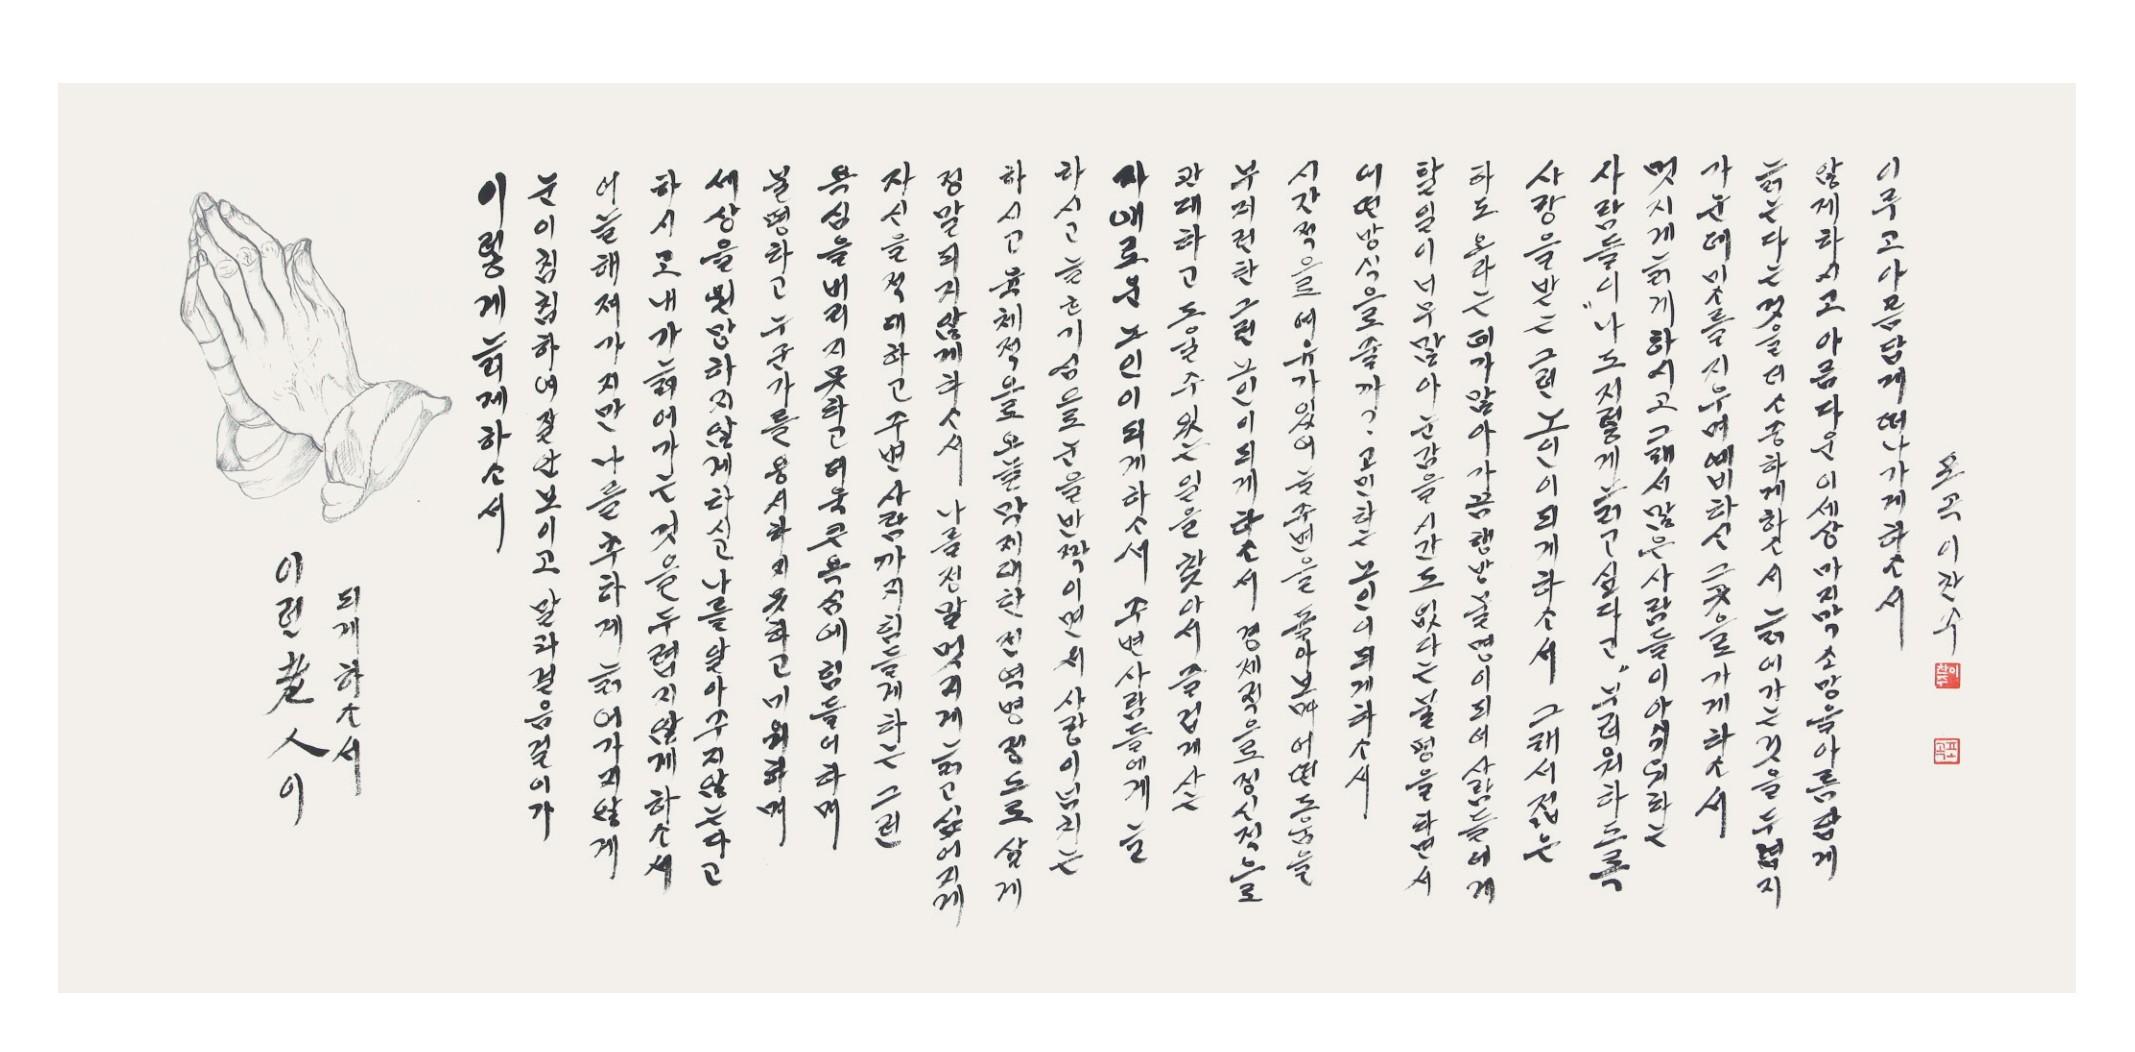 이런 老人이
되게 하소서
이렇게 늙게하소서
눈이침침하여잘안보이고 말과걸음걸이가
어눌해져가지만 나를 추하게 늙어가지않게
하시고내가늙어가는것을두렵지않게하소서
세상을원망하지않게하시고나를알아주지않는다고
불평하고누군가를용서하지못하고미워하며
욕심을버리지못하고더욱큰욕심에힘들어하며
자신을적대하고주변사람까지힘들게하는그런
정말되지않게하소서 나름정말멋지게늙고싶어지게
하시고육체적으로오늘막제대한전역병정도로살게
하시고늘호기심으로눈을반짝이면서사랑이넘치는
자애로운노인이되게하소서 주변사람들에게늘
관대하고도울수있는일을찾아서즐겁게사는
부지런한그런노인이되게하소서 경제적으로정신적으로
시간적으로여유가있어늘주변을돌아보며어떤도움을
어떤방식으로줄까? 고민하는노인이되게하소서
할일이너무많아눈감을시간도없다는불평을하면서
하도오라는데가많아가끔행방불명이되어사람들에게
사랑을받는그런노인이되게하소서 그래서젊은
사람들이"나도저렇게늙고싶다고"부러워하도록
멋지게늙게하시고그래서많은사람들이아쉬워하는
가운데미소를지우며예비하신그곳으로가게하소서
늙는다는것을더소중하게하소서늙어가는것을두렵지
않게하시고아름다운이세상마지막소망을아름답게
이루고아름답게떠나가게하소서
포곡이찬수
이찬수